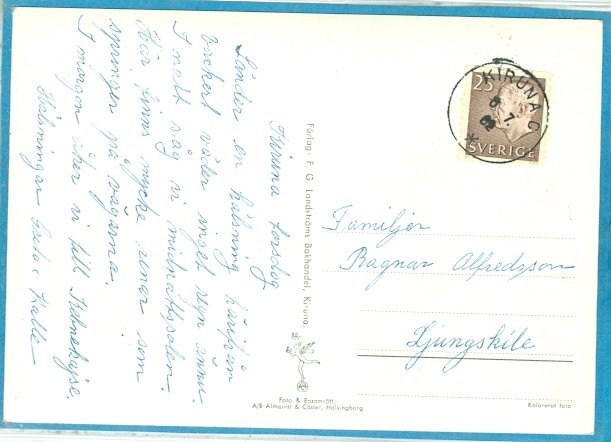 Kiruna torsdag
Sänder en hälsning härifrån
vackert väder inget regn ännu.
I natt såg vi midnattssolen.
Här finns mycke renar som
springer på vägarna.
I morgon åker vi till
Hälsningar Greta o Kalle
Förlag: F. G. Landströms Bokhandel, Kiruna.
Foto & Ensamrätt:
A/B Almquist & Cöster, Hälsingborg
25
SVERIGE
KIRUNA C
7.
Familjen
Ragnar Alfredsson
Ljungskile
Kolorerat foto